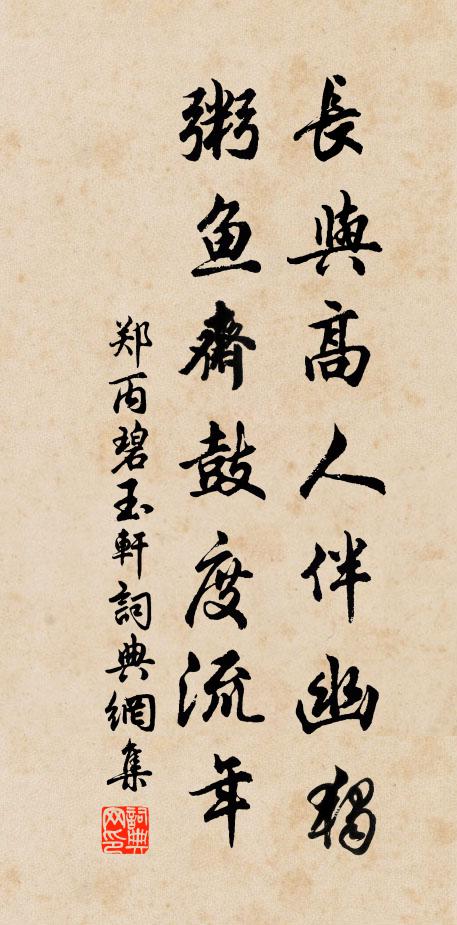 長與高人伴幽獨
粥魚齋鼓度流年
郑丙碧玉軒詞典網集
詞典网印